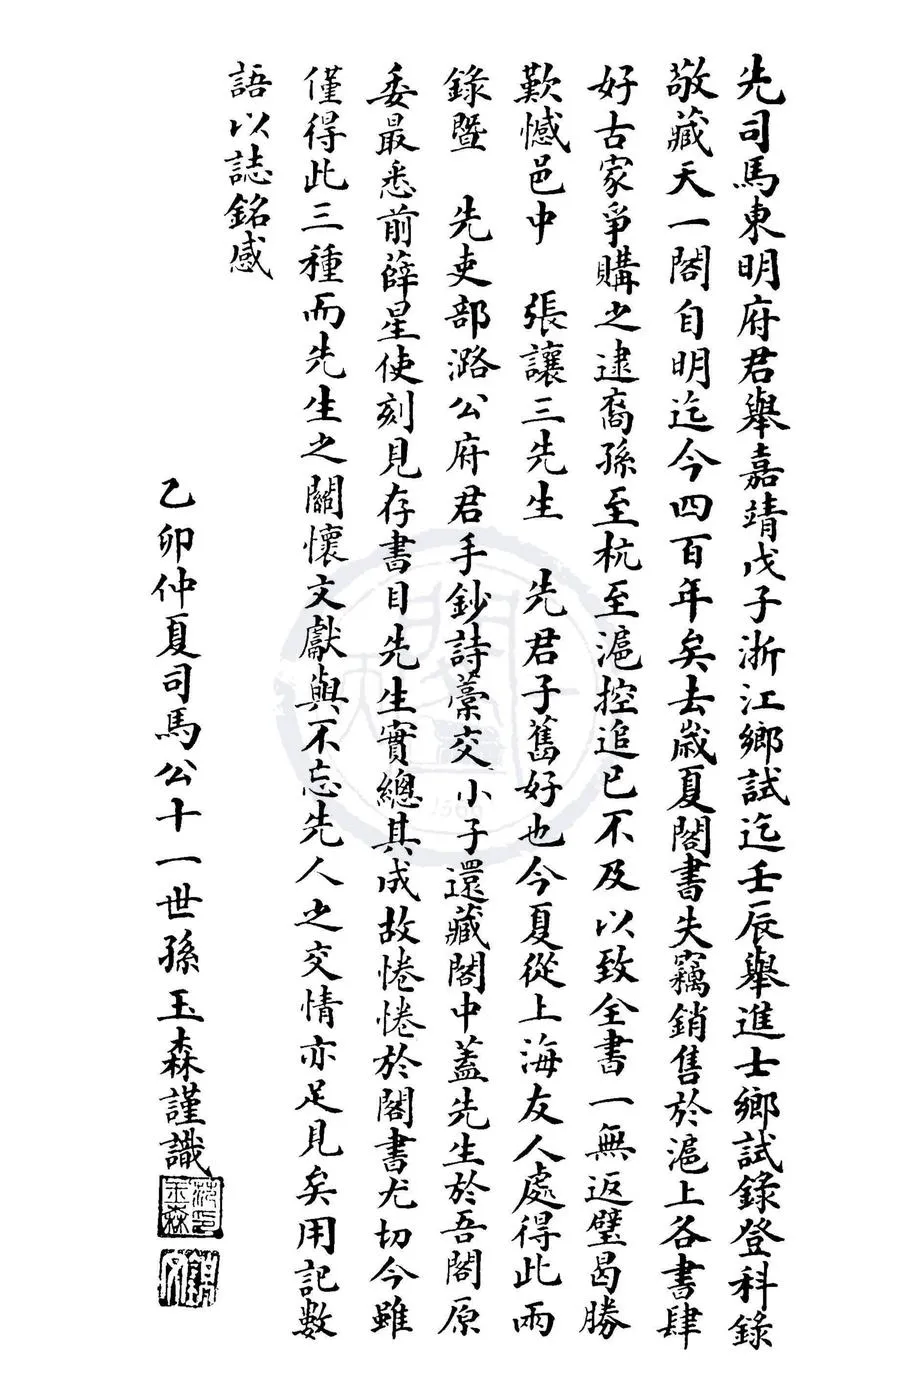 先司馬東明府君舉嘉靖戊子浙江鄉試迄壬辰舉進士鄉試錄登科錄
敬藏天一閣自明迄今四百年矣去歲夏閣書失竊銷售於滬上各書肆
好古家爭購之逮裔孫至杭至滬控追已不及以致全書一無返璧曷勝
歎憾邑中　張讓三先生　先君子舊好也今夏從上海友人處得此兩
錄暨　先吏部潞公府君手鈔詩藁交小子還藏閣中蓋先生於吾閣原
委最悉前薛星使刻見存書目先生實總其成故惓惓於閣書尤切今雖
僅得此三種而先生之關懷文獻與不忘先人之交情亦足見矣用記數
語以誌銘感
乙卯仲夏司馬公十一世孫玉森謹識
范印玉森
天一閣
1566